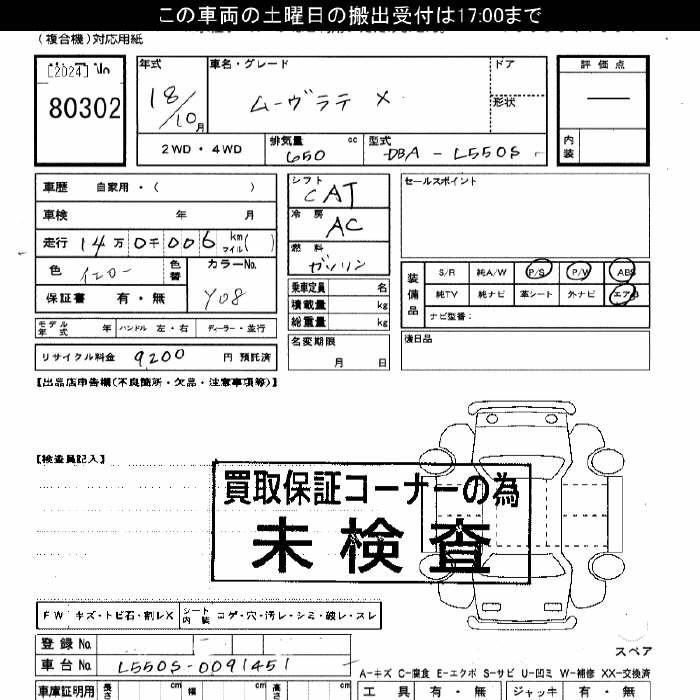 この車両の土曜日の搬出受付は17:00まで
(複合機)対応用紙
[2024] No
80302
年式
18/10月
車名・グレード
ムーヴラテ X
ドア
形状
評価点
―
内装
2WD・4WD
排気量 650 cc
型式 DBA-L550S
車歴 自家用・( )
車検 年 月
走行 14万0千006 km マイル( )
色 イエロー 色替
カラーNo. Y08
保証書 有・無
モデル年式 年 ハンドル 左・右 ディーラー・並行
リサイクル料金 9200 円 預託済
シフト CAT
冷房 AC
燃料 ガソリン
乗車定員 名
積載量 kg
総重量 kg
名変期限
月 日
セールスポイント
装備品
S/R 純A/W P/S P/W ABS
純TV 純ナビ 革シート 外ナビ エアB
ナビ型番:
後日品
【出品店申告欄(不良箇所・欠品・注意事項等)】
【検査員記入】
買取保証コーナーの為
未検査
FW キズ・トビ石・割レX シート内装 コゲ・穴・汚レ・シミ・破レ・スレ
登録 No.
車台 No. L550S-0091451
スペア
A-キズ C-腐食 E-エクボ S-サビ U-凹ミ W-補修 XX-交換済
車庫証明用 長さ cm 幅 cm 高さ cm
工具 有・無 ジャッキ 有・無